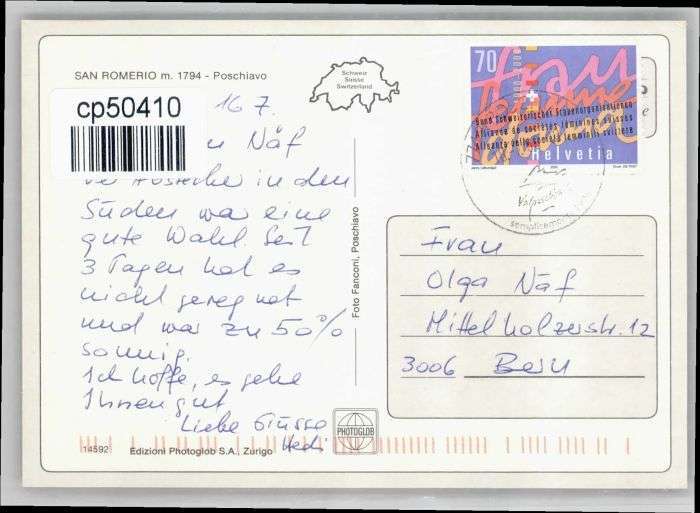 SAN ROMERIO m. 1794 - Poschiavo
Schweiz
Suisse
Switzerland
cp50410
16 7.
Näf
in den
Süden war eine
gute Wahl. Seit
3 Tagen hat es
nicht geregnet
und war zu 50%
sonnig.
Ich hoffe, es gehe
Ihnen gut
Liebe Grüsse
Hedi
14592
Edizioni Photoglob S.A., Zurigo
Foto Fanconi, Poschiavo
PHOTOGLOB
70
frau
femme
Bund Schweizerischer Frauenorganisationen
Alliance de sociétés féminines suisses
Alleanza delle società femminili svizzere
Helvetia
Valposchiavo
Frau
Olga Näf
Mittelholzerstr. 12
3006 Bern